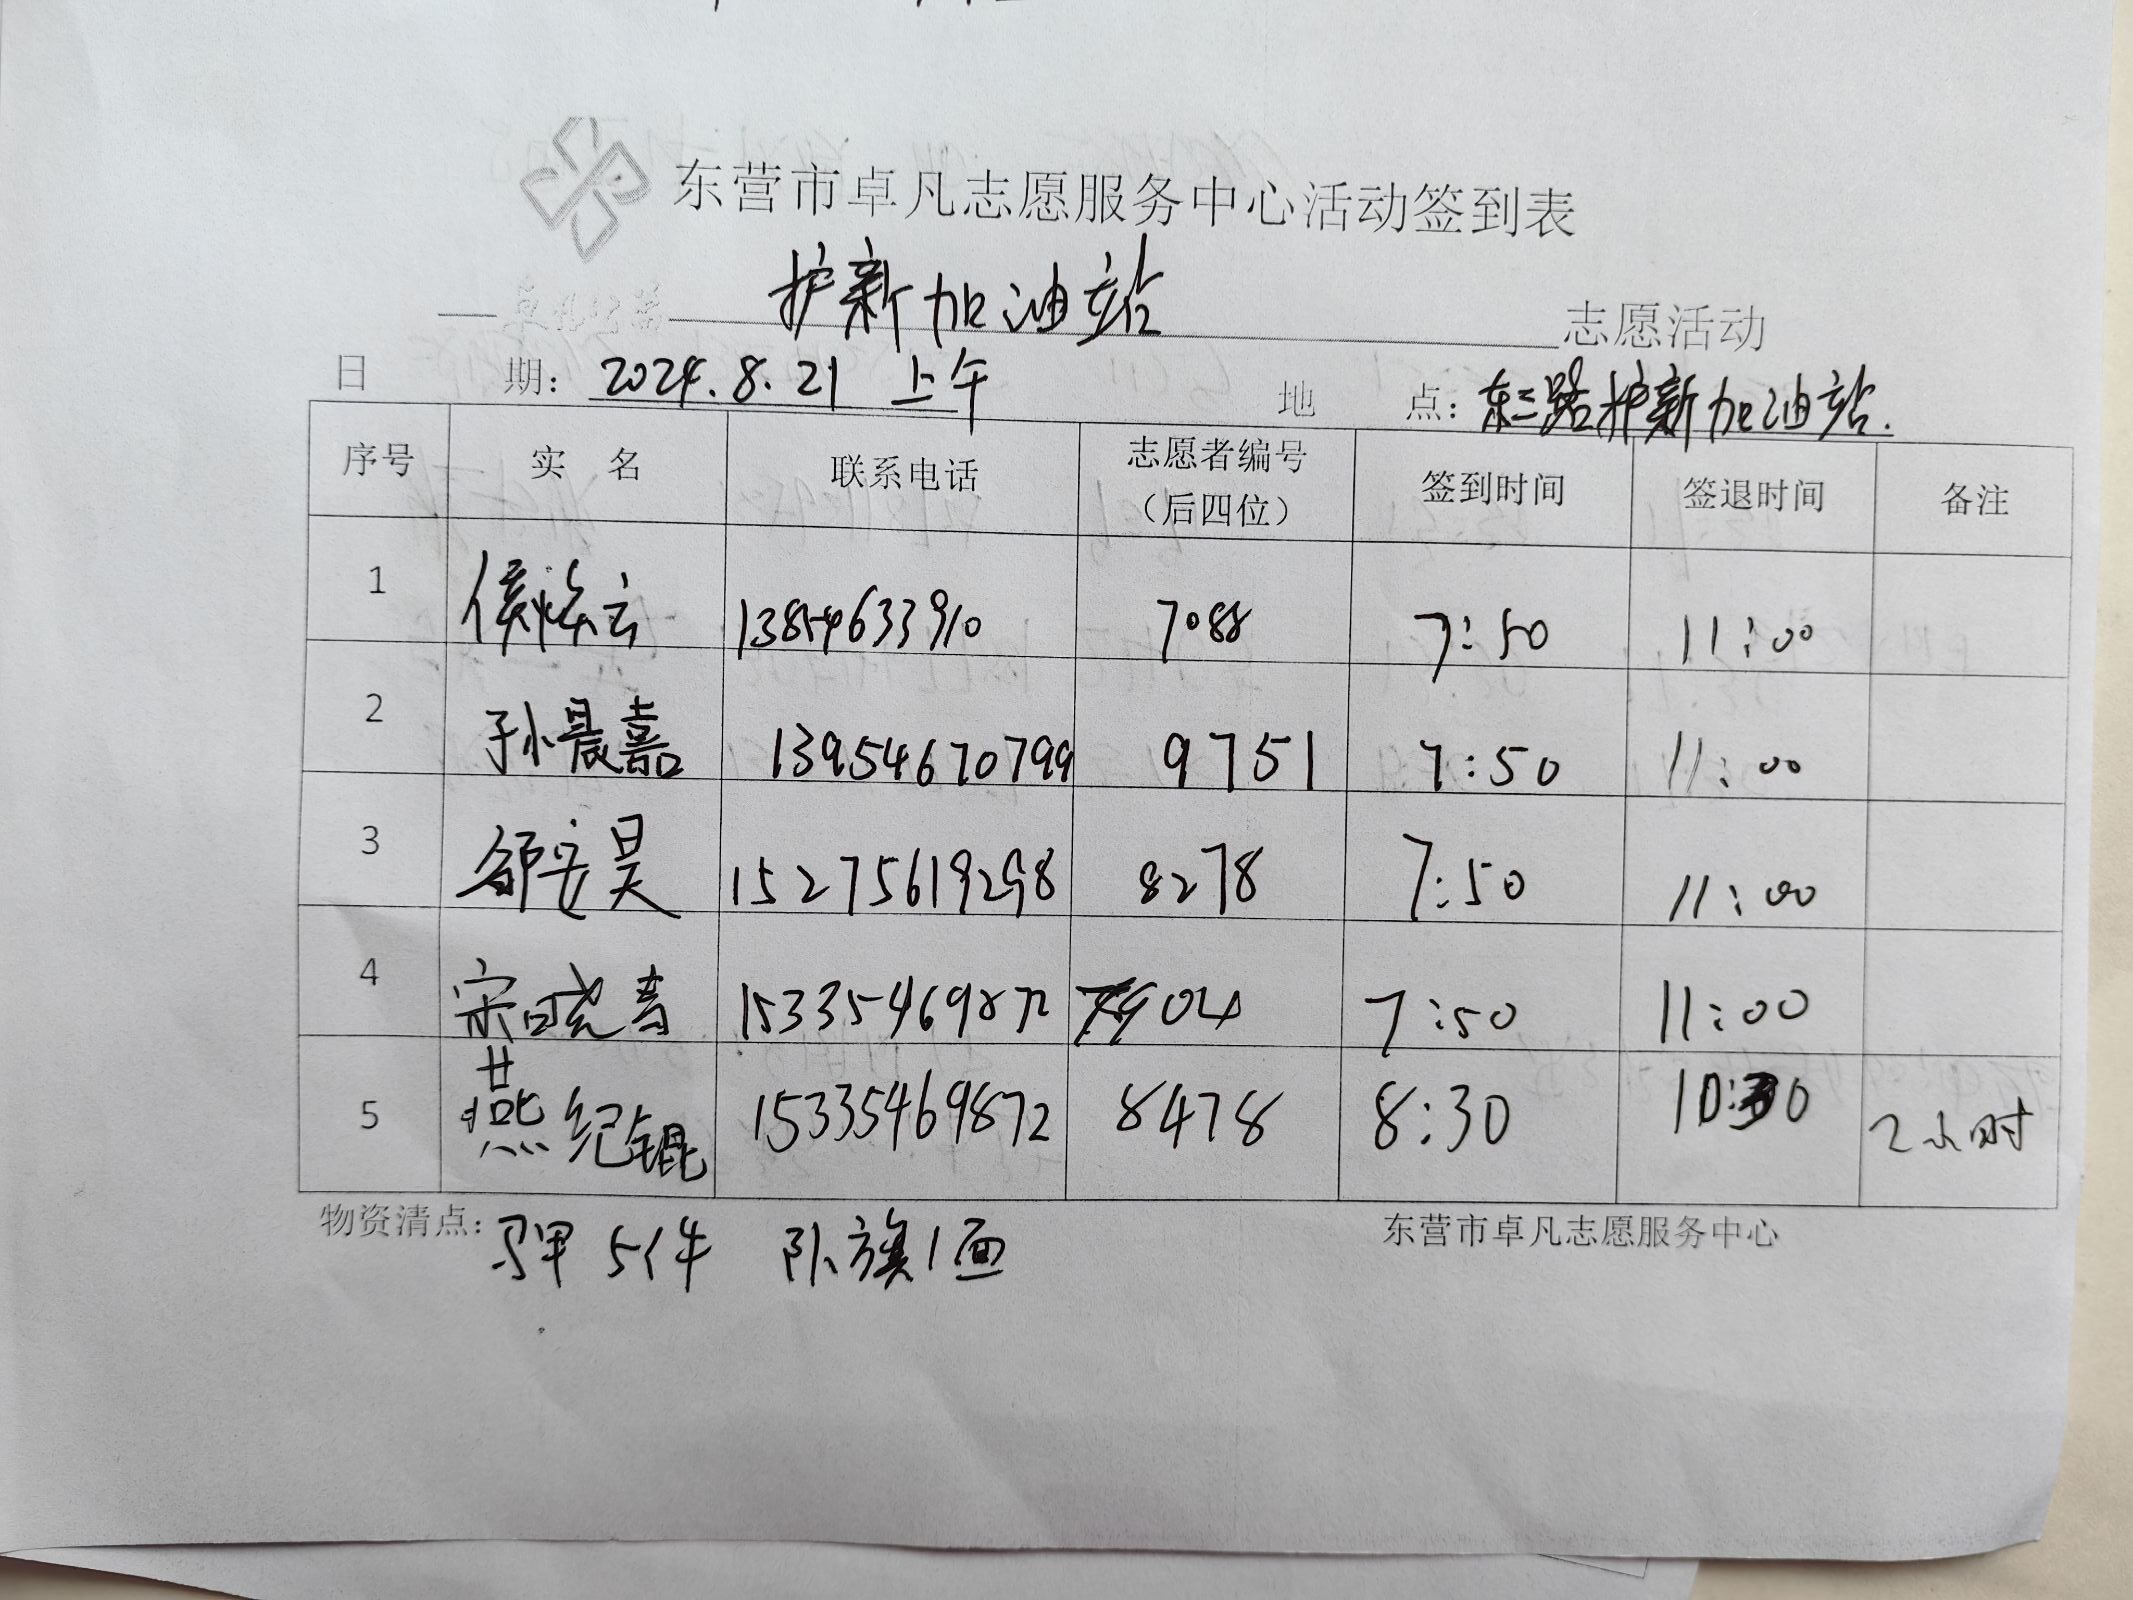 东营市卓凡志愿服务中心活动签到表
护新加油站 志愿活动
日 期: 2024.8.21 上午 地 点: 东三路护新加油站.
序号 实 名 联系电话 志愿者编号（后四位） 签到时间 签退时间 备注
1 侯云 13854633910 7088 7:50 11:00
2 孙晨嘉 13954670799 9751 7:50 11:00
3 昊 15275619298 8278 7:50 11:00
4 宋晓青 15335469872 7904 7:50 11:00
5 燕纪锟 15335469872 8478 8:30 10:30 2小时
物资清点: 马甲5件 队旗1面 东营市卓凡志愿服务中心